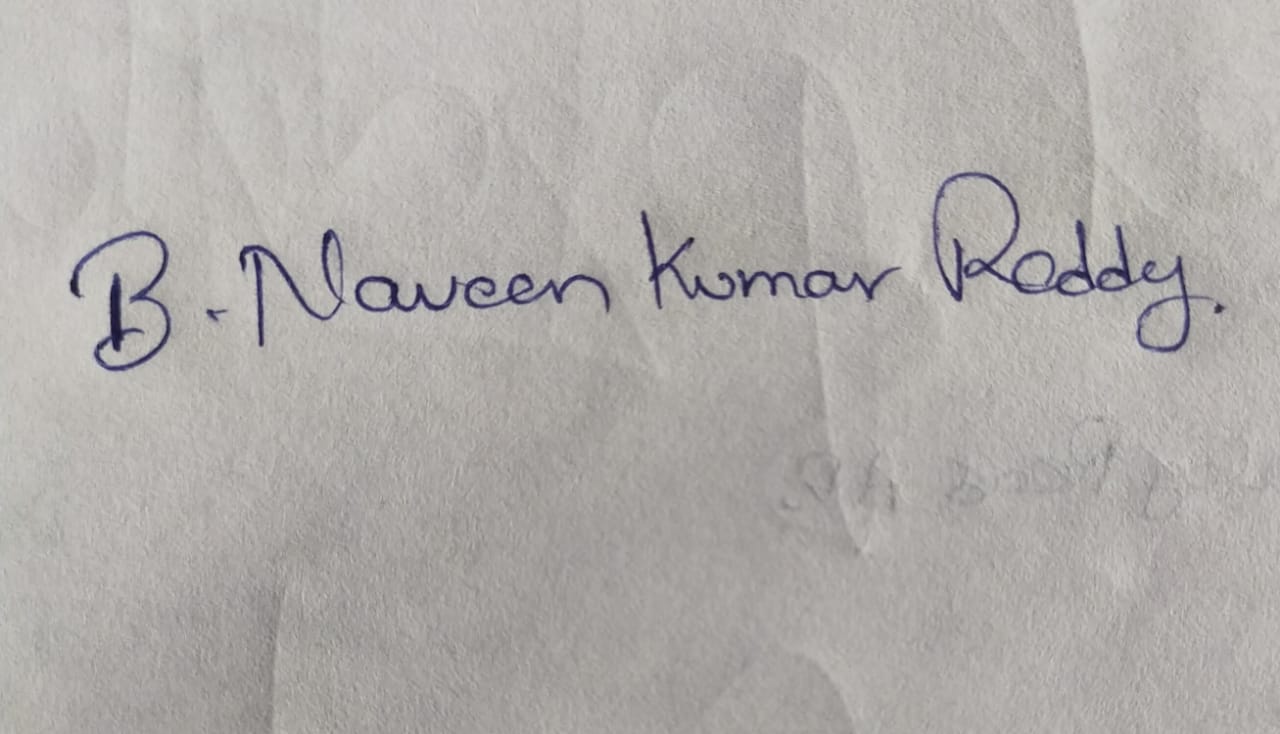 B. Naveen Kumar Reddy.